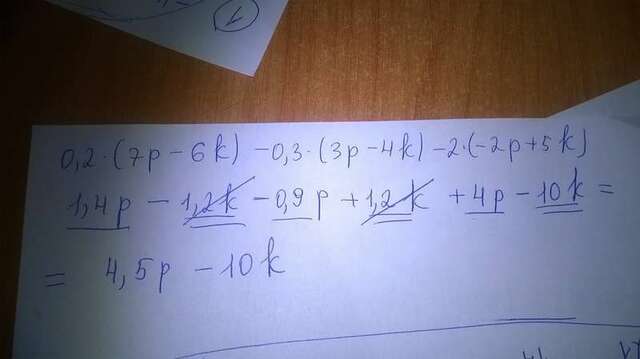 1
0,2·(7p-6k)-0,3·(3p-4k)-2·(-2p+5k)
1,4p-1,2k-0,9p+1,2k+4p-10k=
=4,5p-10k